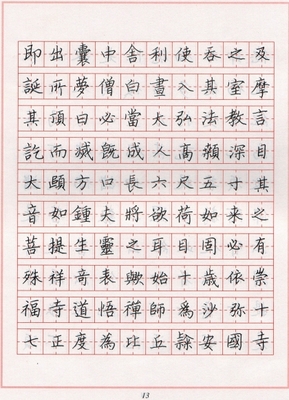 即出囊中舍利使吞之及
誕所夢僧白晝入其室摩
其頂曰必當大弘法教言
訖而滅既成人高顙深目
大頤方口長六尺五寸其
音如鍾夫將欲荷如来之
菩提生靈之耳目固必有
殊祥奇表歟始十歳依崇
福寺道悟禪師爲沙弥十
七正度為比丘隸安國寺
13